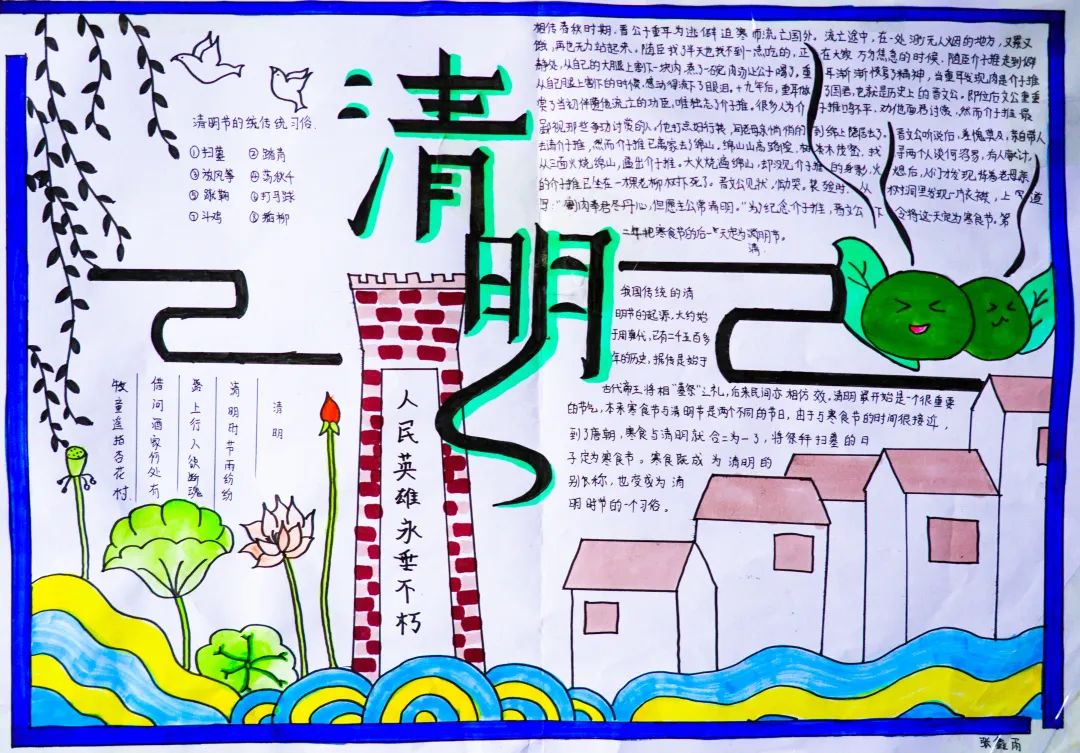 清明
清明节的统传统习俗.
①扫墓 ②踏青
③放风筝 ④荡秋千
⑤蹴鞠 ⑥打马球
⑦斗鸡 ⑧插柳
清明
清明时节雨纷纷
路上行人欲断魂
借问酒家何处有
牧童遥指杏花村.
人民英雄永垂不朽
相传春秋时期,晋公子重耳为逃避迫害而流亡国外,流亡途中,在一处渺无人烟的地方,又累又
饿,再也无力站起来。随臣找了半天也找不到一点吃的,正在大家万分焦急的时候,随臣介子推走到僻
静处,从自己的大腿上割下一块肉,煮了一碗肉汤让公子喝了,重耳渐渐恢复了精神,当重耳发现肉是介子推
从自己腿上割下的时候,感动得流下了眼泪。十九年后,重耳做了国君,也就是历史上的晋文公。即位后文公重重
赏了当初伴随他流亡的功臣,唯独忘了介子推。很多人为介子推鸣不平,劝他面君讨赏,然而介子推最
鄙视那些争功讨赏的人。他打点好行装,同老母亲悄悄的到绵上隐居去了。晋文公听说后,羞愧莫及,亲自带人
去请介子推,然而介子推已离家去了绵山。绵山山高路险,树木茂密,找寻两个人谈何容易,有人献计,
从三面火烧绵山,逼出介子推。大火烧遍绵山,却没见介子推的身影,火熄后,人们才发现背着老母亲
的介子推已坐在一棵老柳树下死了。晋文公见状,恸哭。装殓时,从树洞里发现一片衣襟,上写道
:“割肉奉君尽丹心,但愿主公常清明。”为纪念介子推,晋文公下令将这一天定为寒食节。第
二年把寒食节的后一天定为清明节。
清
我国传统的清
明节的起源,大约始
于周朝代,已有二千五百多
年的历史,据传是始于
古代帝王将相“墓祭”之礼,后来民间亦相仿效。清明最开始是一个很重要
的节气,本来寒食节与清明节是两个不同的节日,由于与寒食节的时间很接近,
到了唐朝,寒食与清明就合二为一了,将祭拜扫墓的日
子定为寒食节。寒食既成为清明的
别称,也变成为清
明时节的一个习俗。
张 雨